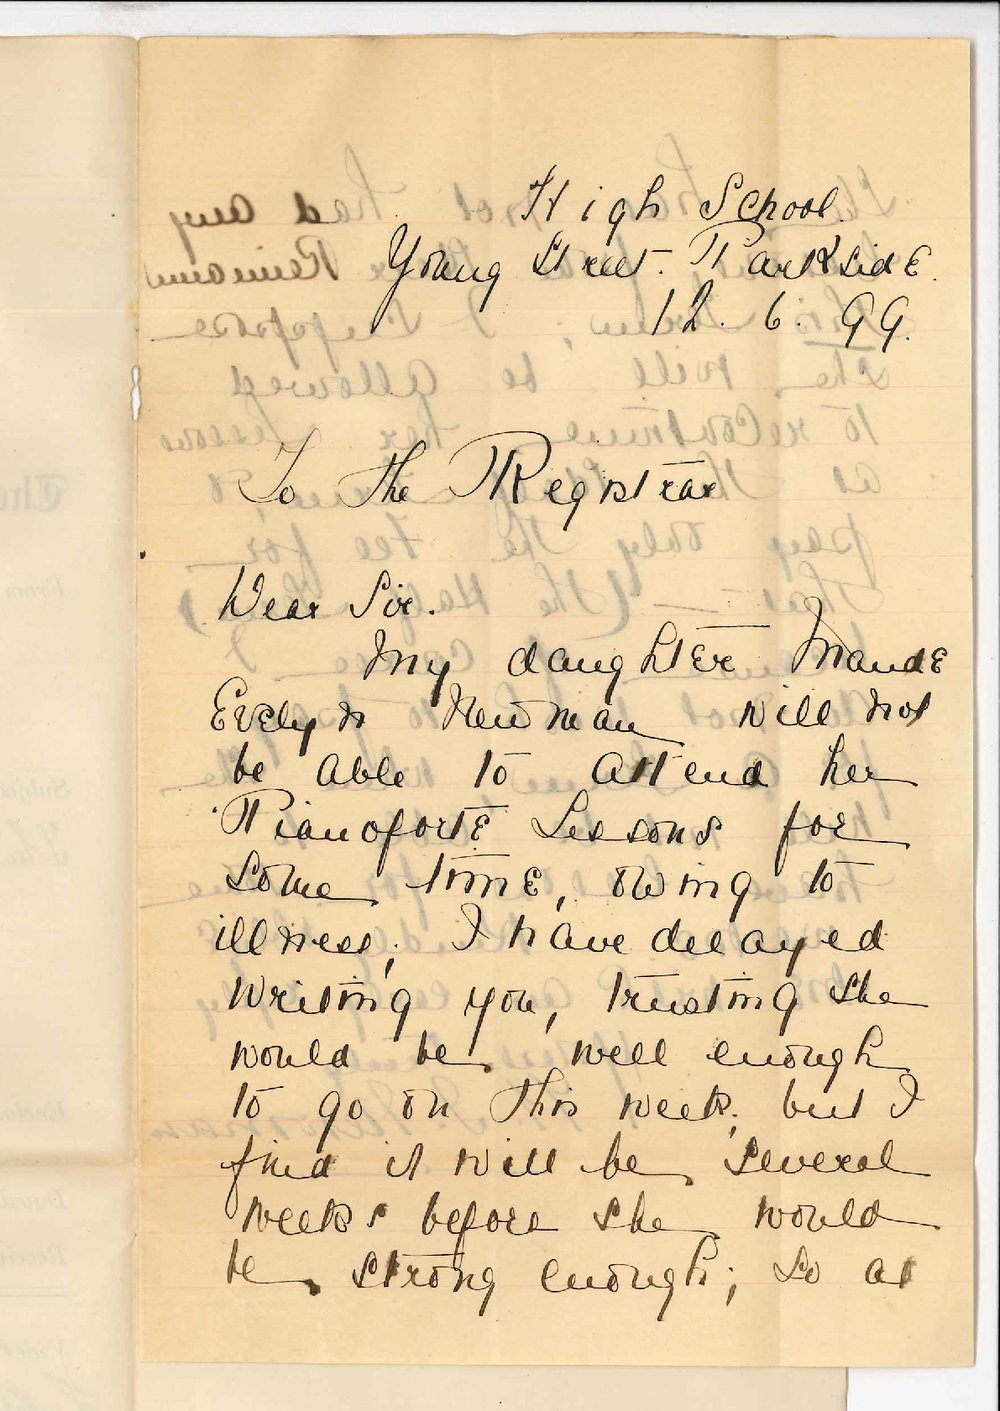 High School.
Young Street. Parkside.
12. 6. 99.
To the Registrar
Dear Sir.
My daughter Maude
Evelyn Newman will not
be able to attend her
Pianoforte Lessons for
some time, owing to
illness, I have delayed
writing you, trusting she
would be well enough
to go on this week, but I
find it will be several
weeks before she would
be strong enough; so as